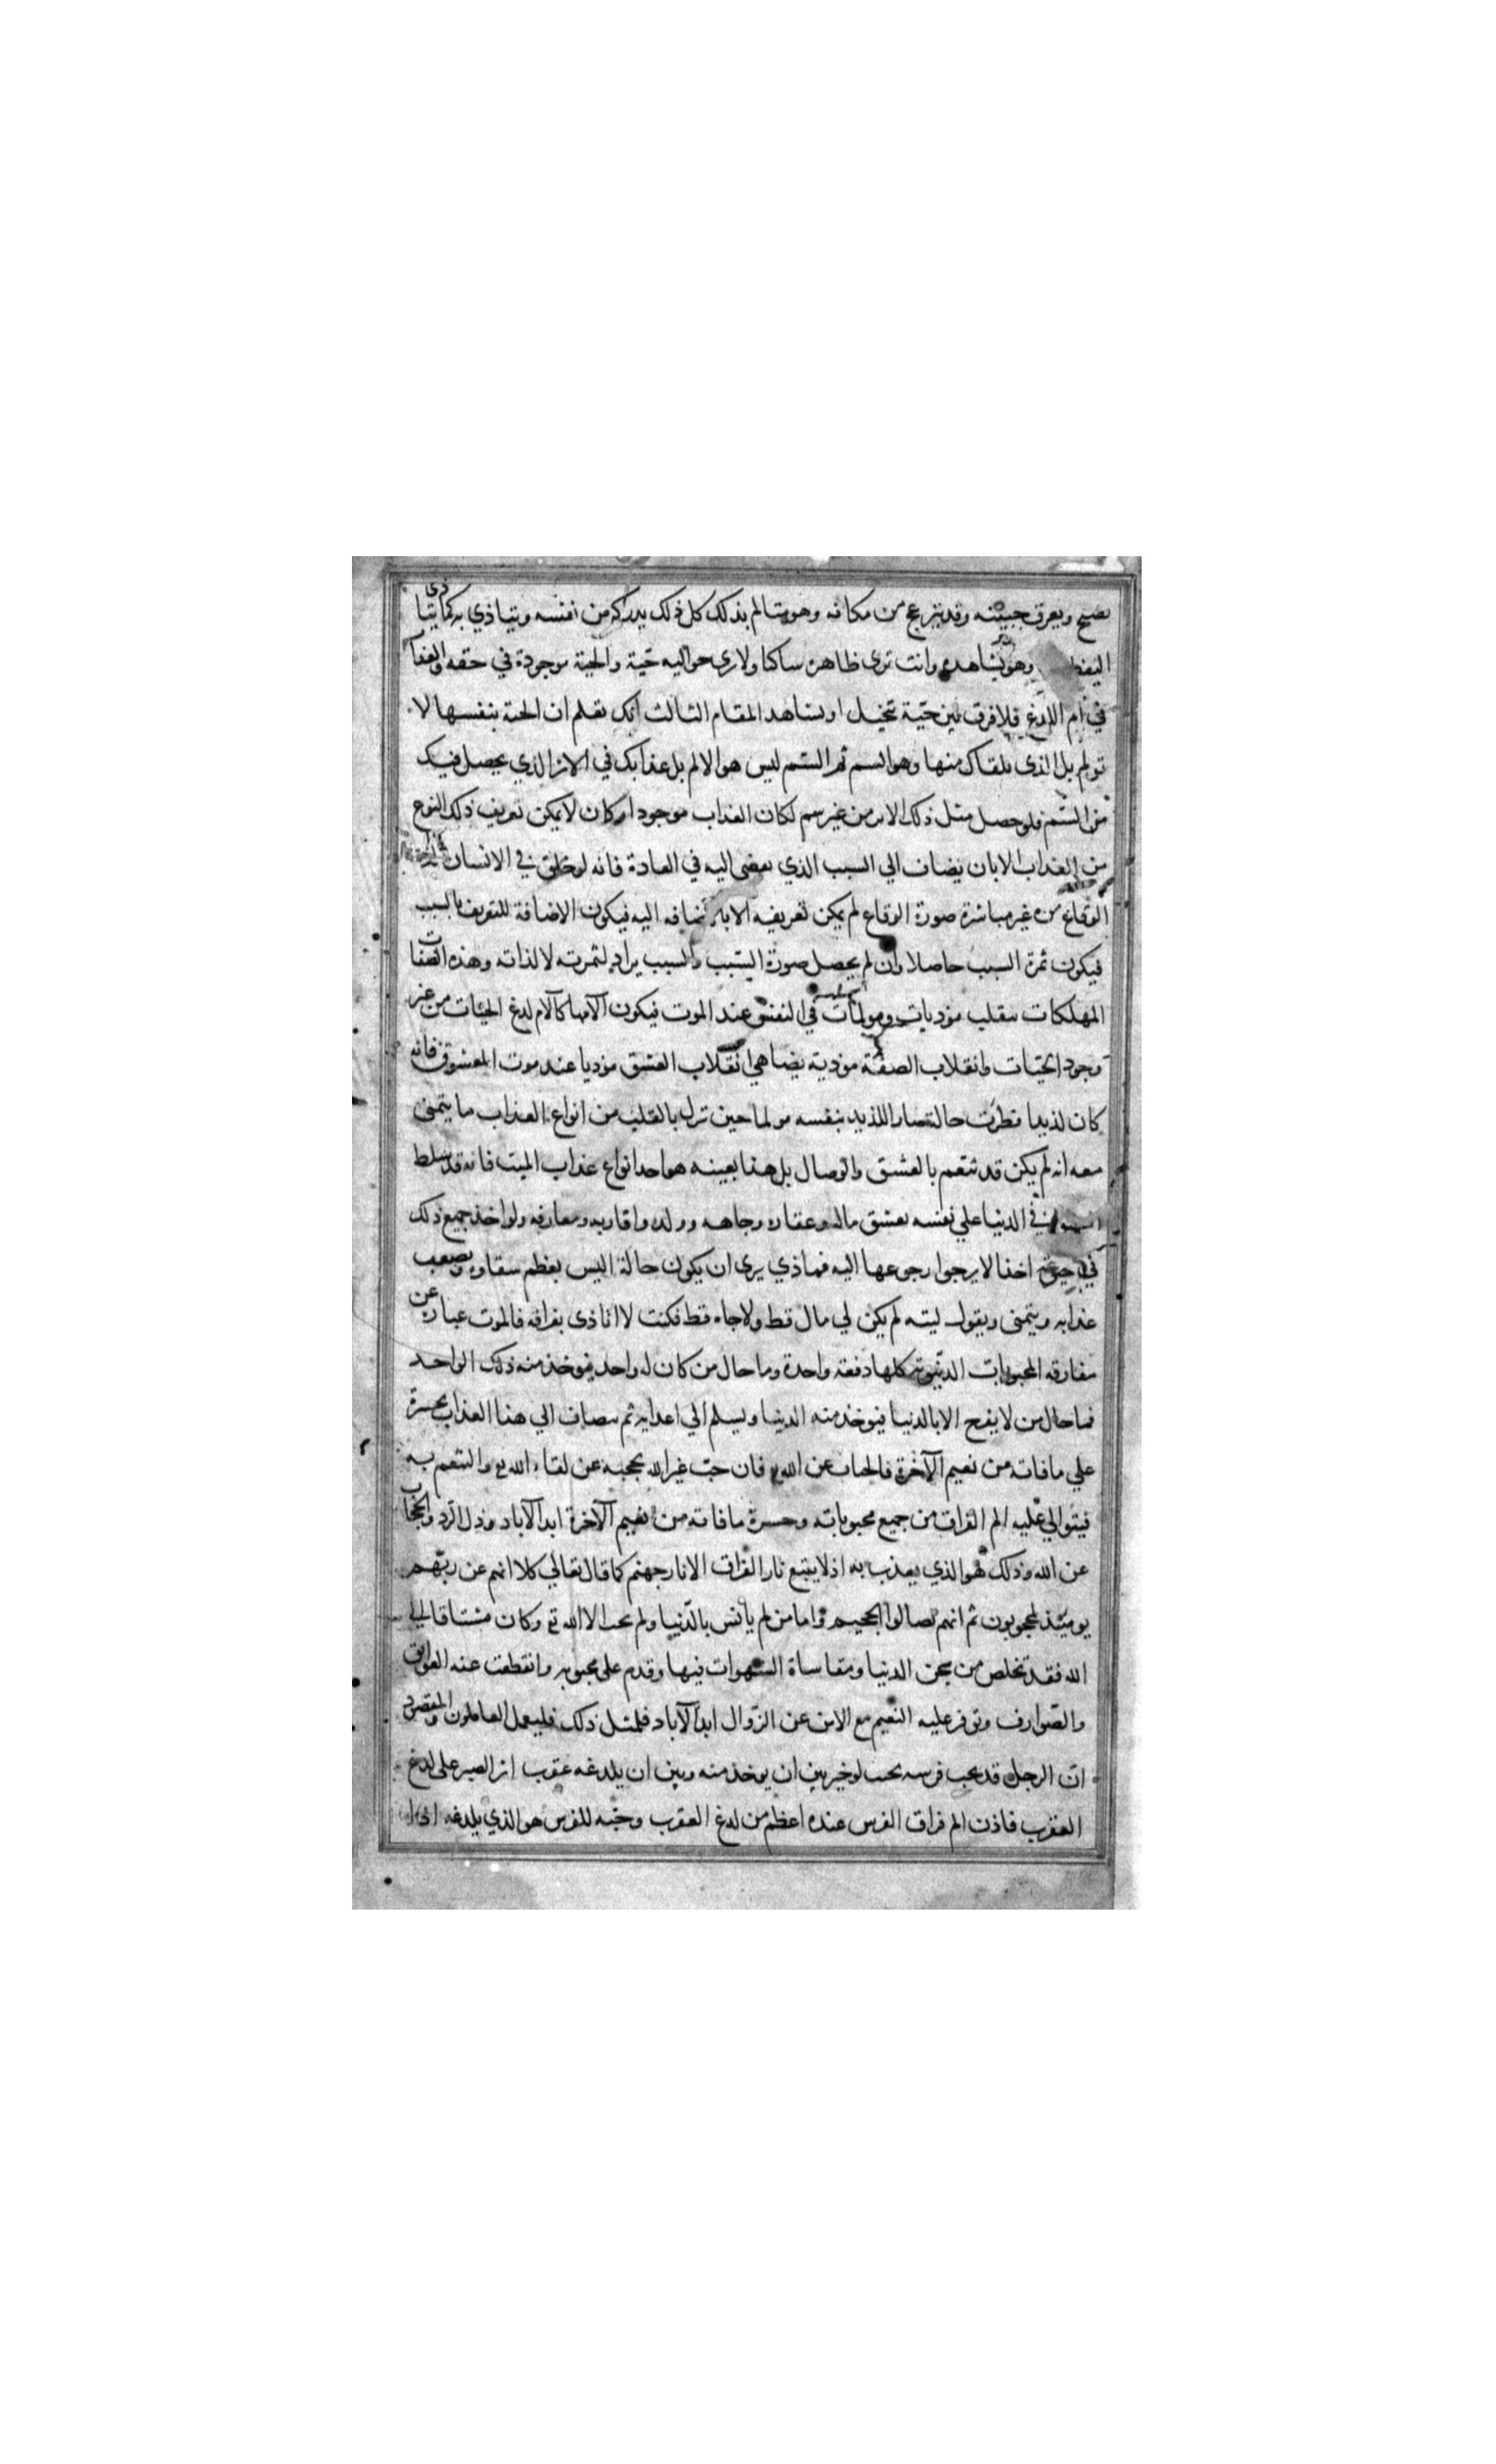 يصيح ويعرق جبينه وقد ينزعج من مكانه وهو يتالم بذلك كل ذلك يدركه من نفسه ويتاذي به كما يتاذى
اليقظ وهو يشاهده وانت ترى ظاهره ساكنا ولا ترى حواليه حية والحية موجودة في حقه والعذاب
في الم اللدغ فلا فرق بين حية تخيل او يشاهد المقام الثالث انك تعلم ان الحية بنفسها لا
تولم بل الذى يلقاك منها وهو السم ثم السم ليس هو الالم بل عذابك في الاثر الذي يحصل فيك
من السم فلو حصل مثل ذلك الاثر من غير سم لكان العذاب موجودا وكان لا يمكن تعريف ذلك النوع
من العذاب الا بان يضاف الي السبب الذي يفضى اليه في العادة فانه لو خلق في الانسان لذة
الوقاع من غير مباشرة صورة الوقاع لم يمكن تعريفه الا باضافه اليه فيكون الاضافة للتعريف بالسبب
فيكون ثمرة السبب حاصلا وان لم يحصل صورة السبب والسبب يراد لثمرته لا لذاته وهذه الصفات
المهلكات ينقلب موذيات ومولمات في النفس عند الموت فيكون آلامها كآلام لدغ الحيات من غير
وجود الحيات وانقلاب الصفة موذية يضاهي انقلاب العشق موذيا عند موت المعشوق فانه
كان لذيذا فطرت حالة صار اللذيذ بنفسه مولما حين نزل بالقلب من انواع العذاب ما يتمنى
معه انه لم يكن قد تنعم بالعشق والوصال بل هذا بعينه هو احد انواع عذاب الميت فانه قد سلط
في الدنيا علي نفسه بعشق ماله وعقاره وجاهه وولده واقاربه ومعارفه ولو اخذ جميع ذلك
في حيوته اخذا لا يرجوا رجوعها اليه فماذي يرى ان يكون حالة اليس يعظم شقاوه ويصعب
عذابه ويتمنى ويقول ليته لم يكن لي مال قط ولا جاه قط فكنت لا اتاذى بفراقه فالموت عبارة عن
مفارقه المحبوبات الدنيوية كلها دفعه واحدة وما حال من كان له واحد فيوخذ منه ذلك الواحد
فما حال من لا يفرح الا بالدنيا فيوخذ منه الدنيا ويسلم الي اعدايه ثم يضاف الي هذا العذاب تحسرة
علي ما فاته من نعيم الآخرة فالحجاب عن الله فان حب غير الله يحجبه عن لقاء الله تع والتنعم به
فيتوالي عليه الم الفراق من جميع محبوباته وحسرة ما فاته من نعيم الآخرة ابد الآباد وذل الرد والحجاب
عن الله وذلك هو الذي يعذب به اذ لا يتبع نار الفراق الا نار جهنم كما قال تعالي كلا انهم عن ربهم
يومئذ لمحجوبون ثم انهم لصالوا الجحيم واما من لم يأنس بالدنيا ولم يحب الا الله تع وكان مشتاقا الي
الله فقد تخلص من سجن الدنيا ومقاساة الشهوات فيها وقدم على محبوبه وانقطعت عنه العوايق
والصوارف وتوفر عليه النعيم مع الامن عن الزوال ابد الآباد فلمثل ذلك فليعمل العاملون والمقصود
ان الرجل قد يحب فرسه بحيث لو خير بين ان يوخذ منه وبين ان يلدغه عقرب اثر الصبر على لدغ
العقرب فاذن الم فراق الفرس عنده اعظم من لدغ العقرب وحبه للفرس هو الذي يلدغه